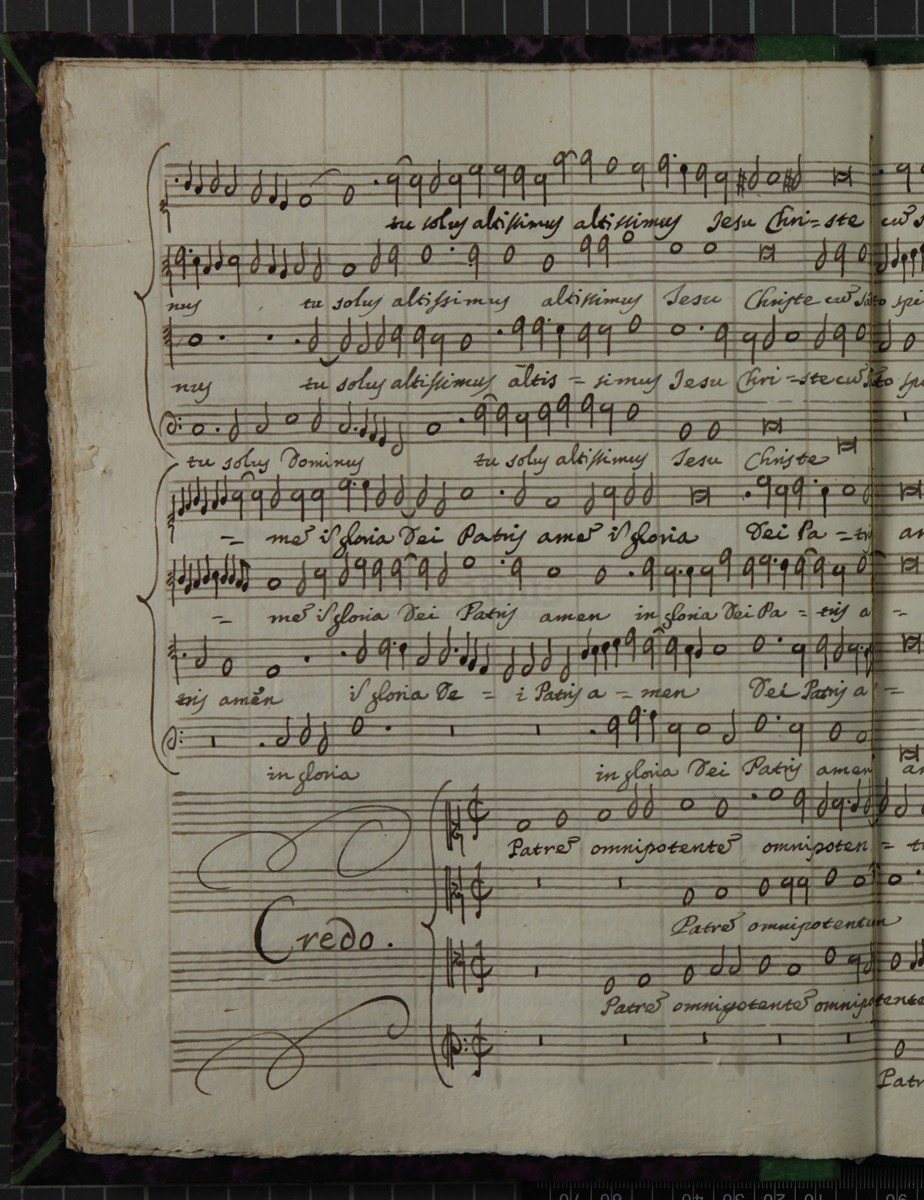 tu solus altissimus altissimus Jesu Chri=ste cu͂
nus tu solus altissimus altissimus Jesu Christe cu͂
nus tu solus altissimus altis = simus Jesu Chri=ste cu͂
tu solus Dominus tu solus altissimus Jesu Christe
= me͂ i͂ gloria Dei Patris ame͂ i͂ gloria Dei Pa = tris
= me͂ i͂ gloria Dei Patris amen in gloria Dei Pa = tris a =
tris amen i͂ gloria De = i Patris a = men Dei Patris a =
in gloria in gloria Dei Patris amen
Patre͂ omnipotente͂ omnipoten =
Patre͂ omnipotentem
Credo.
Patre͂ omnipotente͂ omnipotente
Patr